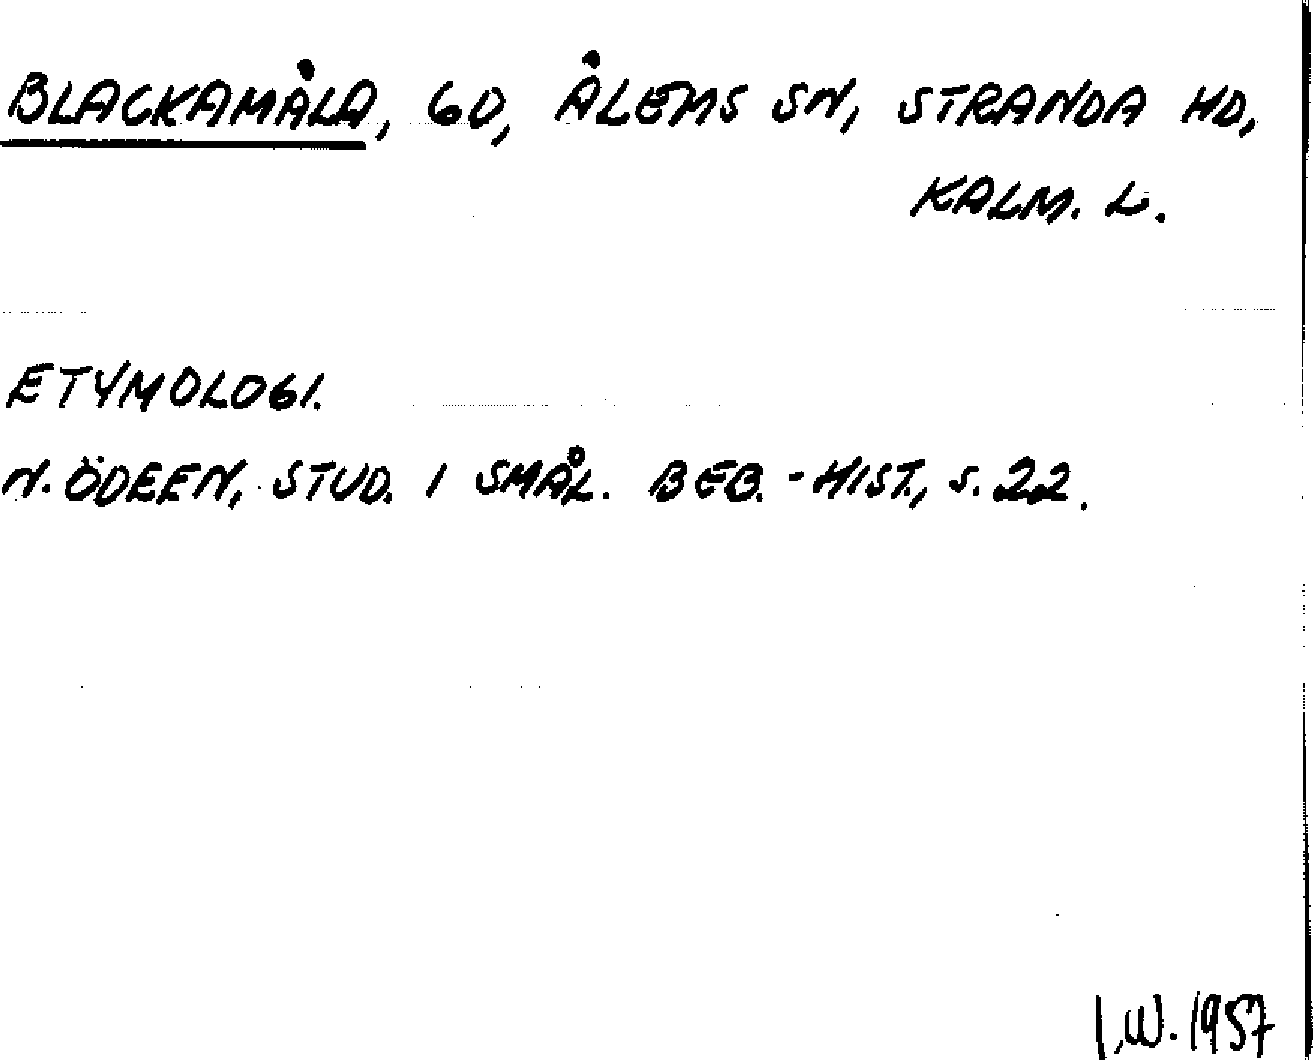 BLACKAMÅLA, GD, ÅLEMS SN, STRANDA HD,
KALM. L.
ETYMOLOGI.
N. ÖDEEN, STUD. I SMÅL. BEB.-HIST., S. 22.
I.W. 1957